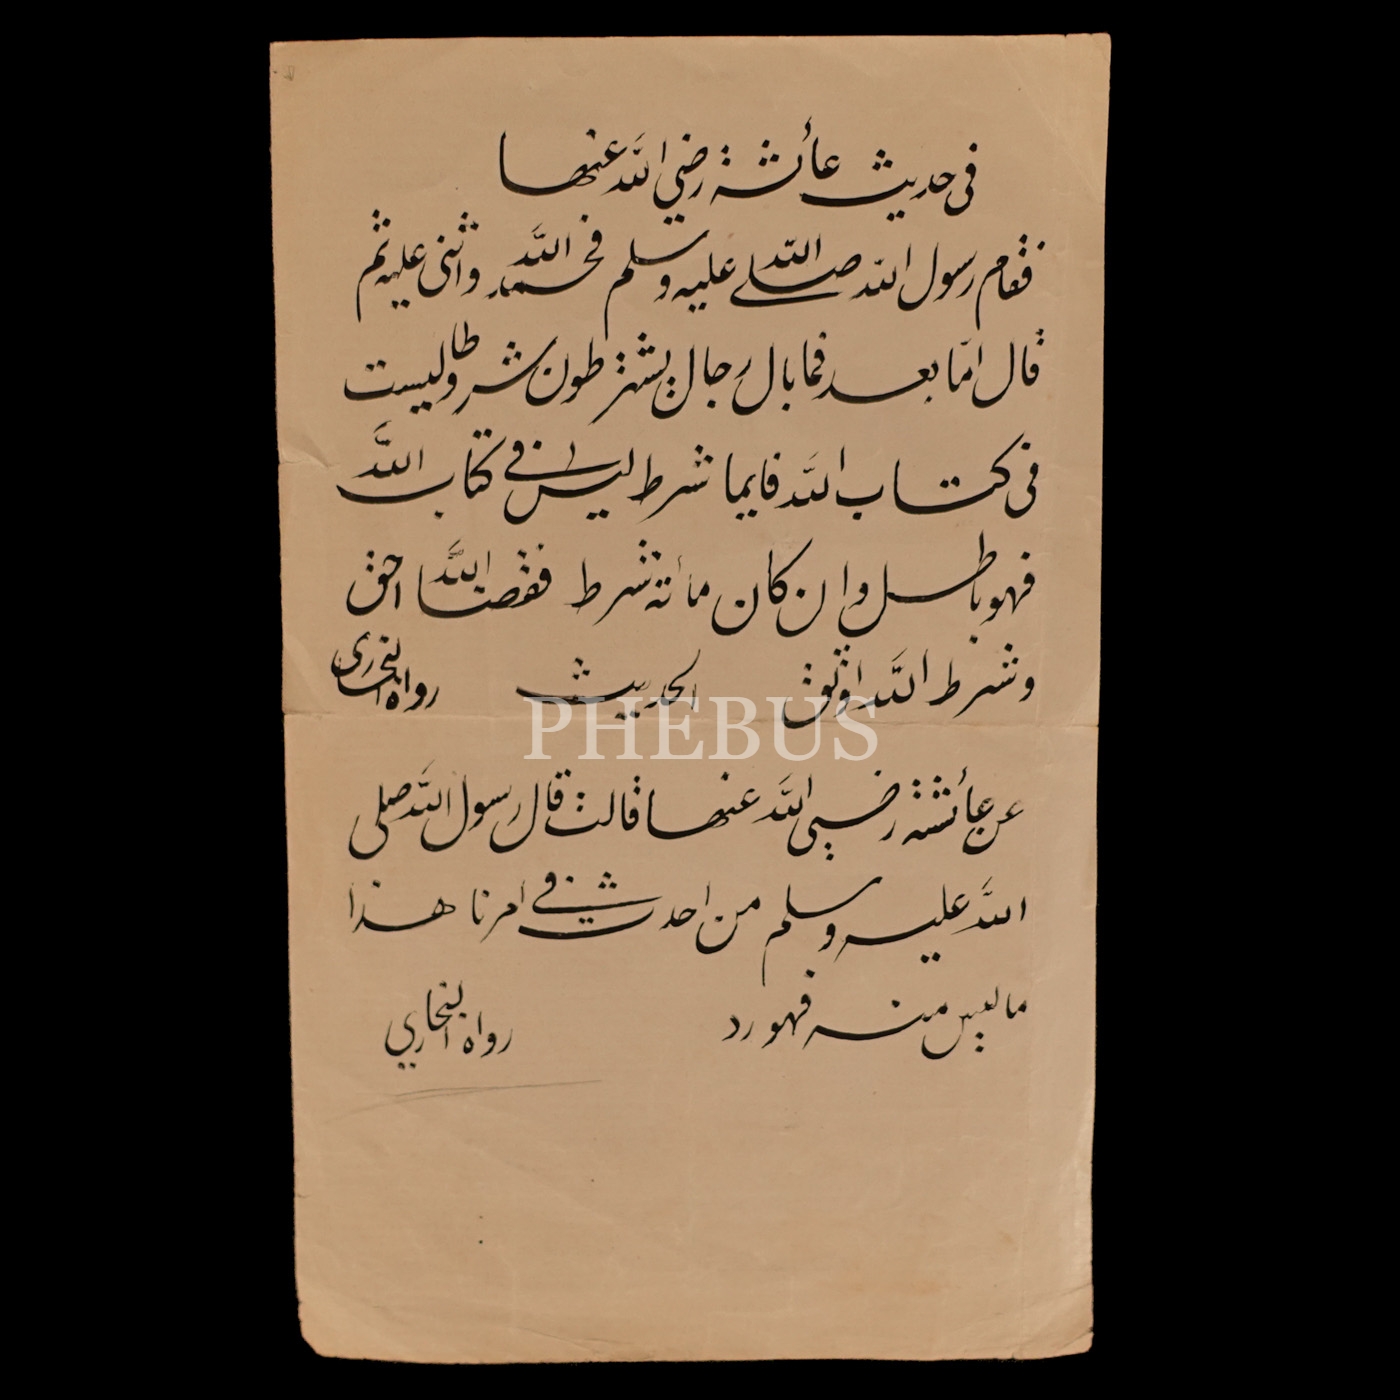 في حديث عائشة رضي الله عنها
فقام رسول الله صلى الله عليه وسلم فحمد الله واثنى عليه ثم
قال امّا بعد فما بال رجال يشترطون شروطا ليست
في كتاب الله فايما شرط ليس في كتاب الله
فهو باطل وان كان مأته شرط فقضا الله احق
وشرط الله اوثق الحديث رواه البخاري
PHEBUS
عن عائشة رضي الله عنها قالت قال رسول الله صلى
الله عليه وسلم من احدث في أمرنا هذا
ما ليس منه فهو رد رواه البخاري